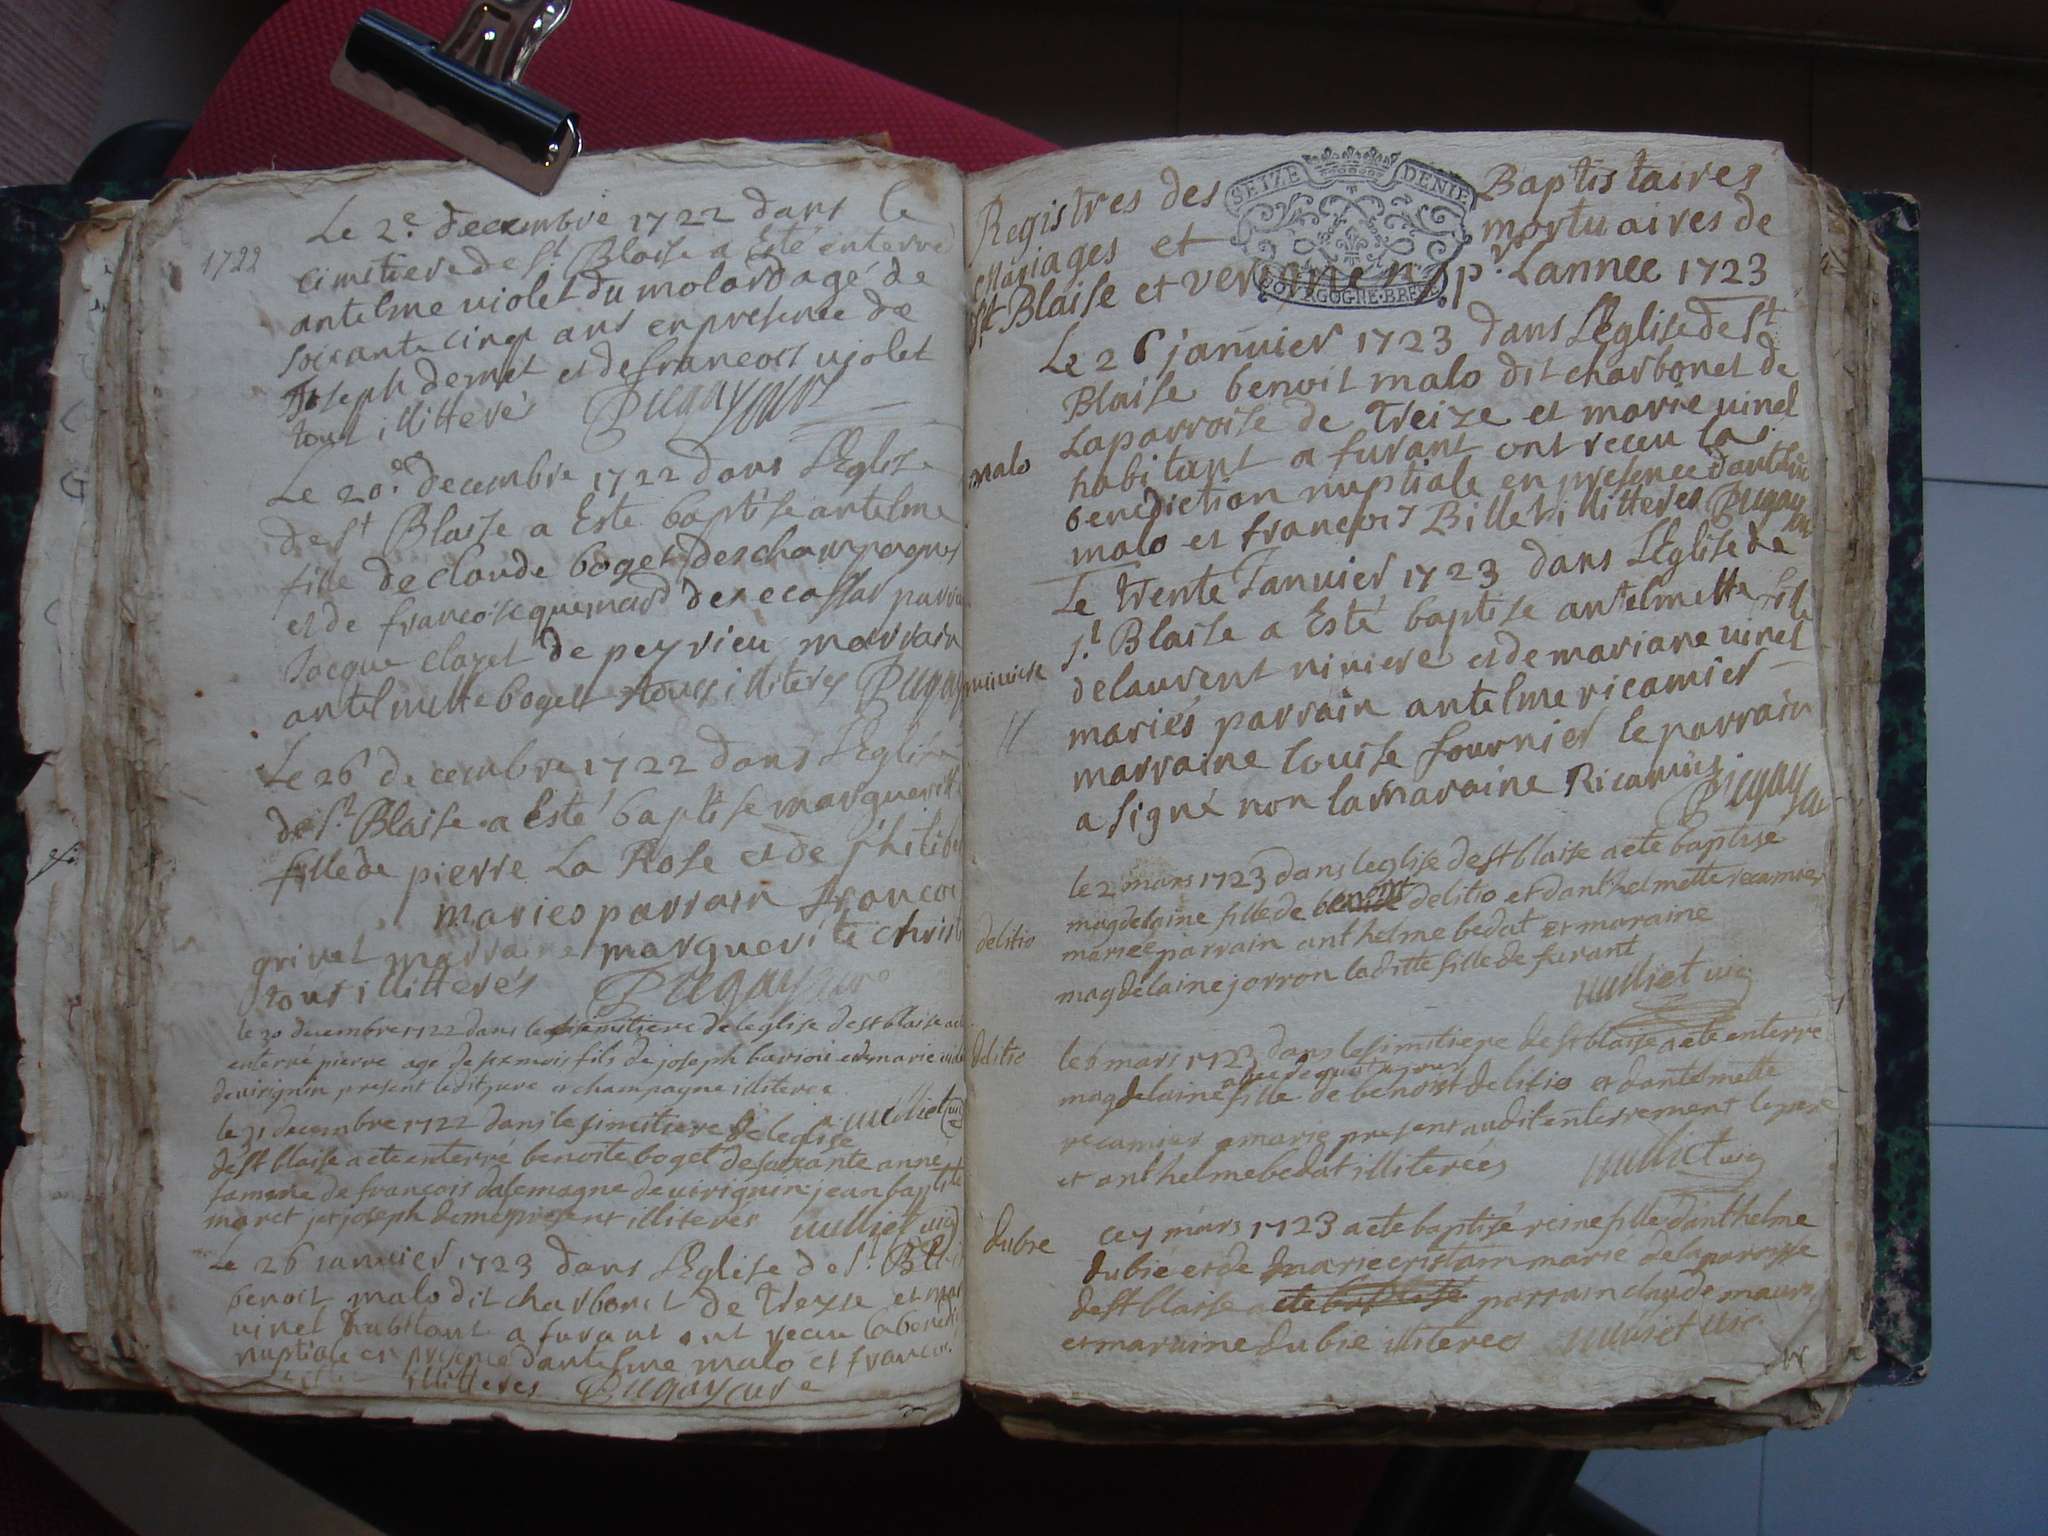 1722
Le 2e decembre 1722 dans le
cimetiere de St Blaise a Esté enterré
antelme violet du molard agé de
soixante cinq ans en presence de
Joseph demet et de francois violet
tous illitterés Pugay curé
Le 20e decembre 1722 dans L'Eglise
de St Blaise a Esté baptise antelme
fille de claude boget des champagnes
et de francoise quemard des ecassas parrain
Jacque clozet de peyrieu marrain
antelmette boget tous illiteres Pugay
Le 26 decembre 1722 dans L'Eglise
de St Blaise a Esté baptise marguerite
fille de pierre La Rose et de philibe
maries parrain francois
grivet marraine marguerite christ
tous illitterés Pugay curé
le 30 decembre 1722 dans le simitiere de leglise de st blaise a ete
enterré pierre age de six mois fils de joseph et de marie
de virignin present ledit pere et champagne illiteree
vulliet vic
le 31 decembre 1722 dans le simitiere de leglise
de st blaise a ete enterré benoite boget de soixante anne
famme de francois dalemagne de virignin jean baptiste
maret et joseph deme present illiteres vulliet vic
Le 26 ianuier 1723 dans L'Eglise de St Bla
benoit malo dit charbonet de Treyse et mar
vinet habitant a furant ont receu la benedi
nuptiale en presence d'antelme malo et francois
illitteres Pugay curé
SEIZE DENIE
BOURGOGNE·BRESSE
Registres des Baptistaires
Mariages et mortuaires de
St Blaise et pr L'année 1723
Le 26 januier 1723 dans L'Eglise de St
Blaise benoit malo dit charbonet de
La parroise de Treize et marie vinet
malo
habitant a furant ont receu la
benediction nuptiale en presence d'antelme
malo et francois Billet illitteres Pugay
Le Trente Januier 1723 dans L'Eglise de
St Blaise a Esté baptise antelmette fille
niniere
de laurent niniere et de mariane vinet
mariés parrain antelme ricamier
//
marraine louise fournier le parrain
a signé non la maraine Ricamier
Pugay cu
le 2 mars 1723 dans leglise de st blaise a ete baptise
magdelaine fille de benoit delitio et danthelmette recamier
delitio
mariee parrain anthelme bedat et maraine
magdelaine jorron laditte fille de furant
vulliet vic
delitio
le 6 mars 1723 dans le simitiere de st blaise a ete enterré
agee de quatre jours
magdelaine fille de benoist delitio et dantelmette
recamier marie present audit enterrement le pere
et anthelme bedat illiterées vulliet vic
dubie
ce 7 mars 1723 a ete baptisé reine fille danthelme
dubie et de marie cristain marie de la parroisse
de st blaise a ete baptisé parrain claude maure
et maraine dubie illiterés vulliet vic